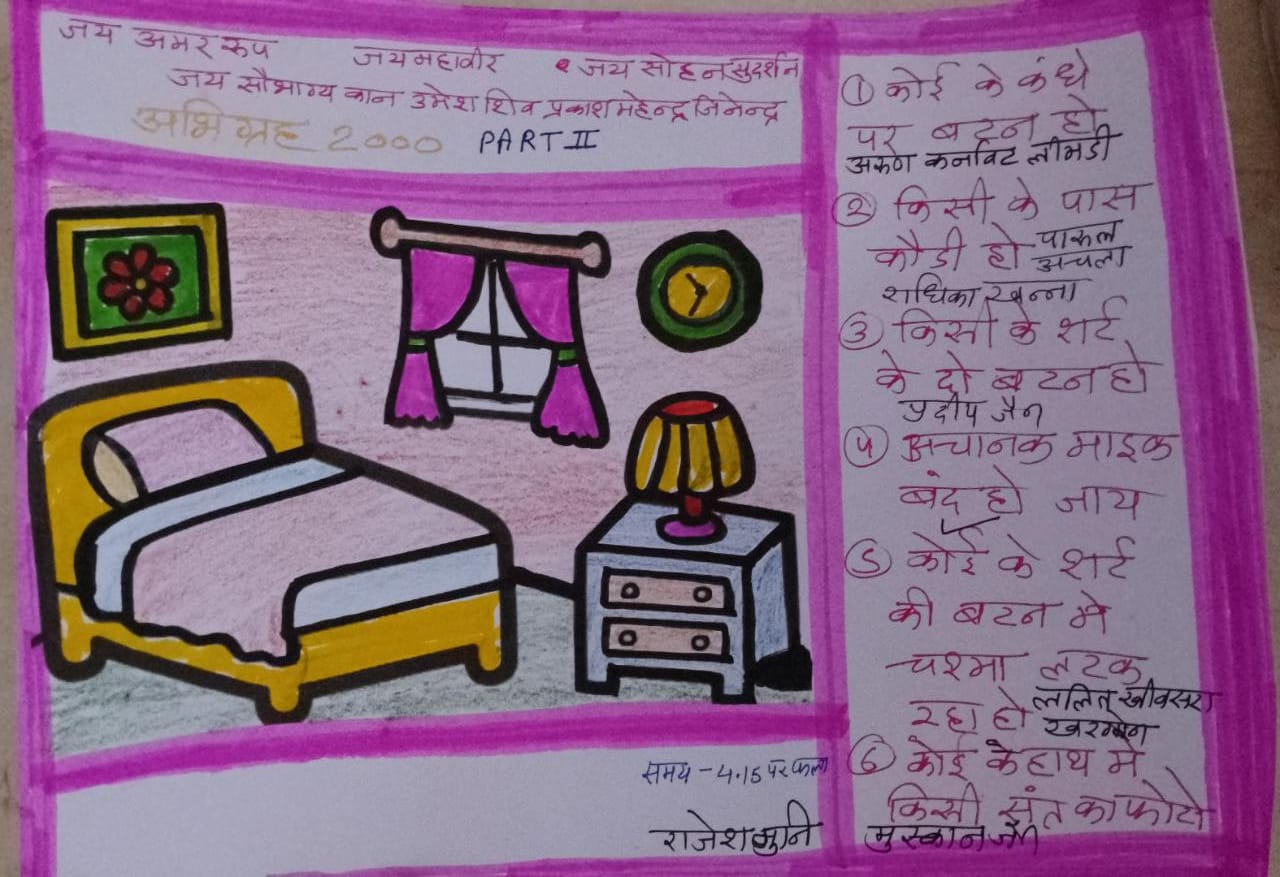 जय अमर रूप जय महावीर जय सोहन सुदर्शन
जय सौभाग्य कान उमेश शिव प्रकाश महेन्द्र जिनेन्द्र
अभिग्रह 2000 PART II
① कोई के कंधे
पर बटन हो
अरुण कर्नावट लीमडी
② किसी के पास
कौडी हो पारुल
अचला
राधिका खन्ना
③ किसी के शर्ट
के दो बटन हो
प्रदीप जैन
④ अचानक माइक
बंद हो जाय
⑤ कोई के शर्ट
की बटन मे
चश्मा लटक
रहा हो ललित खीवसरा
खरगोन
⑥ कोई के हाथ मे
किसी संत का फोटो
मुस्कान जैन
समय - 4.15 पर फला
राजेश मुनि